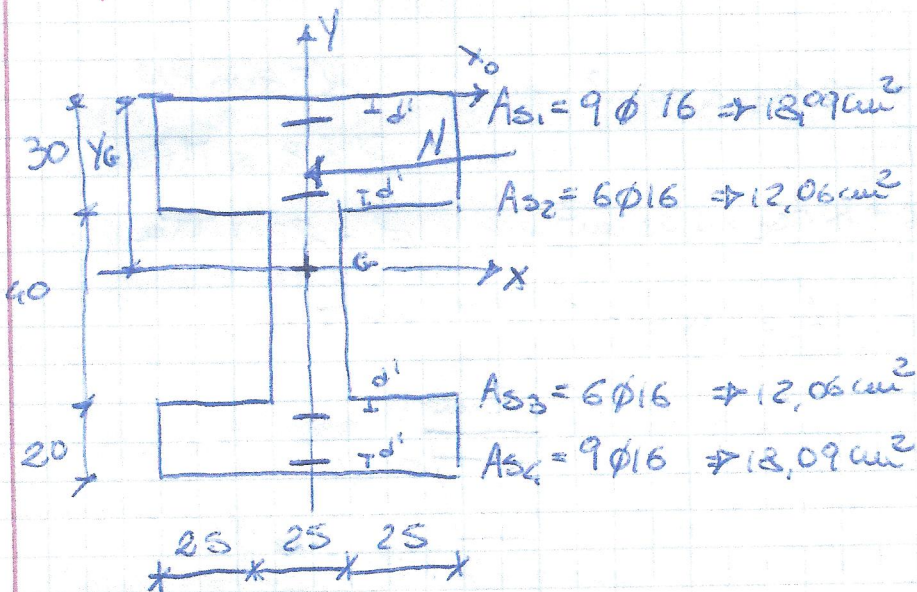 Y
x₀
30
Y_G
d'
As₁ = 9 ϕ 16 ⇒ 18,09 cm²
N
d'
As₂ = 6 ϕ 16 ⇒ 12,06 cm²
G
X
40
d'
As₃ = 6 ϕ 16 ⇒ 12,06 cm²
20
d'
As₄ = 9 ϕ 16 ⇒ 18,09 cm²
25 25 25